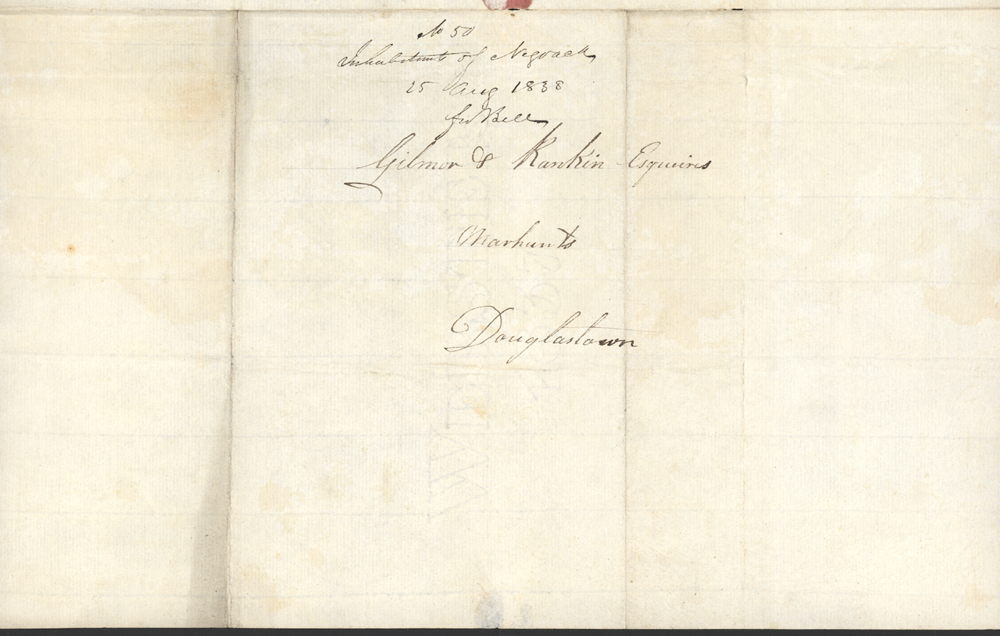 No 50
Inhabitants of Negoack
25 Aug 1838
for Bell
Gilmor & Rankin Esquires
Marhunts
Douglastown